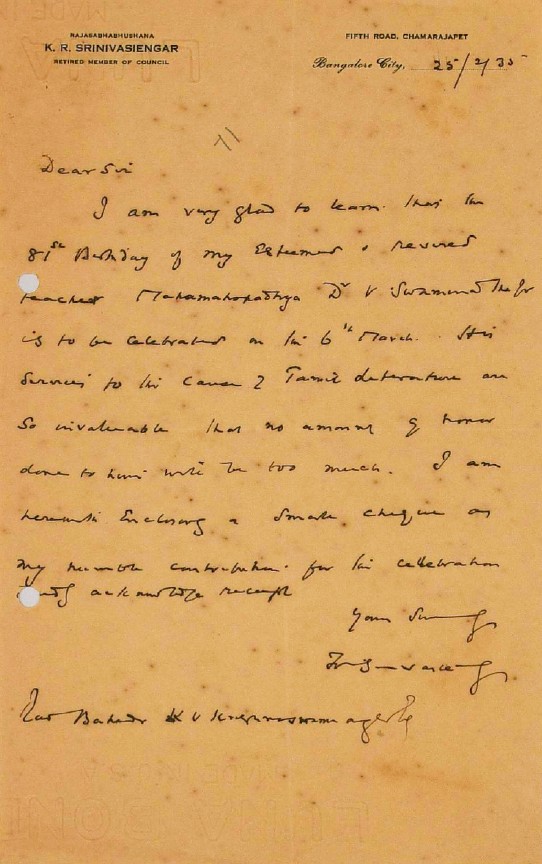 RAJASABHABHUSHANA
K. R. SRINIVASIENGAR
RETIRED MEMBER OF COUNCIL
FIFTH ROAD, CHAMARAJAPET
Bangalore City, 25/2/35
71
Dear Sir
I am very glad to learn that the
81st Birthday of my Esteemed & revered
teacher Mahamahopadhya Dr V Swaminatha Iyer
is to be celebrated on the 6th March. His
Services to the Cause of Tamil Literature are
So invaluable that no amount of honor
done to him will be too much. I am
herewith Enclosing a Small cheque as
my humble contribution for the celebration
Kindly acknowledge receipt
Yours Sincerely
Rao Bahadur K V Krishnaswami